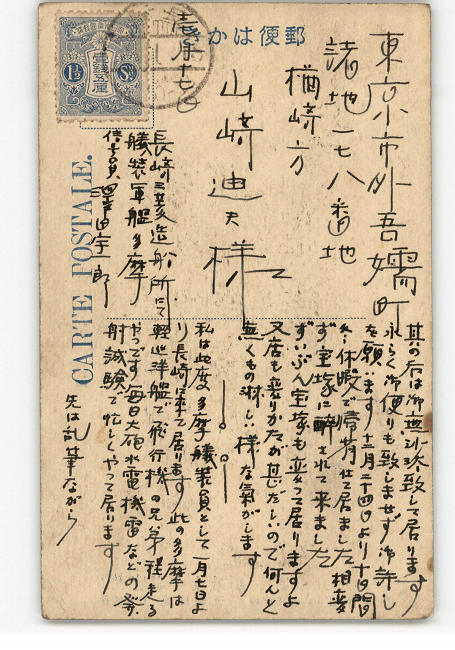 郵便はがき
東京市外吾嬬町
諸地一七八番地
楢崎方
山崎迪夫様
長崎三菱造船所にて
艤装軍艦多摩
信号員 澤田宇一郎
壱銭五厘
1½ Sn
CARTE POSTALE.
其の后は御無沙汰致して居ります
永らく御便りも致しませず御許し
を願います十二月二十四日より十日間
冬休暇で帰省して居ました相変
ず宝塚に酔されて来ました
ずいぶん宝塚も変って居りますよ
又店も変りかたが甚だしいので何んと
無くもの淋しい様な気がします
私は此度多摩艤装員として一月七日よ
り長崎に来て居ります 此の多摩は
軽巡洋艦で飛行機の兄弟程走る
やつです毎日大砲水雷電機などの発
射試験で忙しくやって居ります
先は乱筆ながら